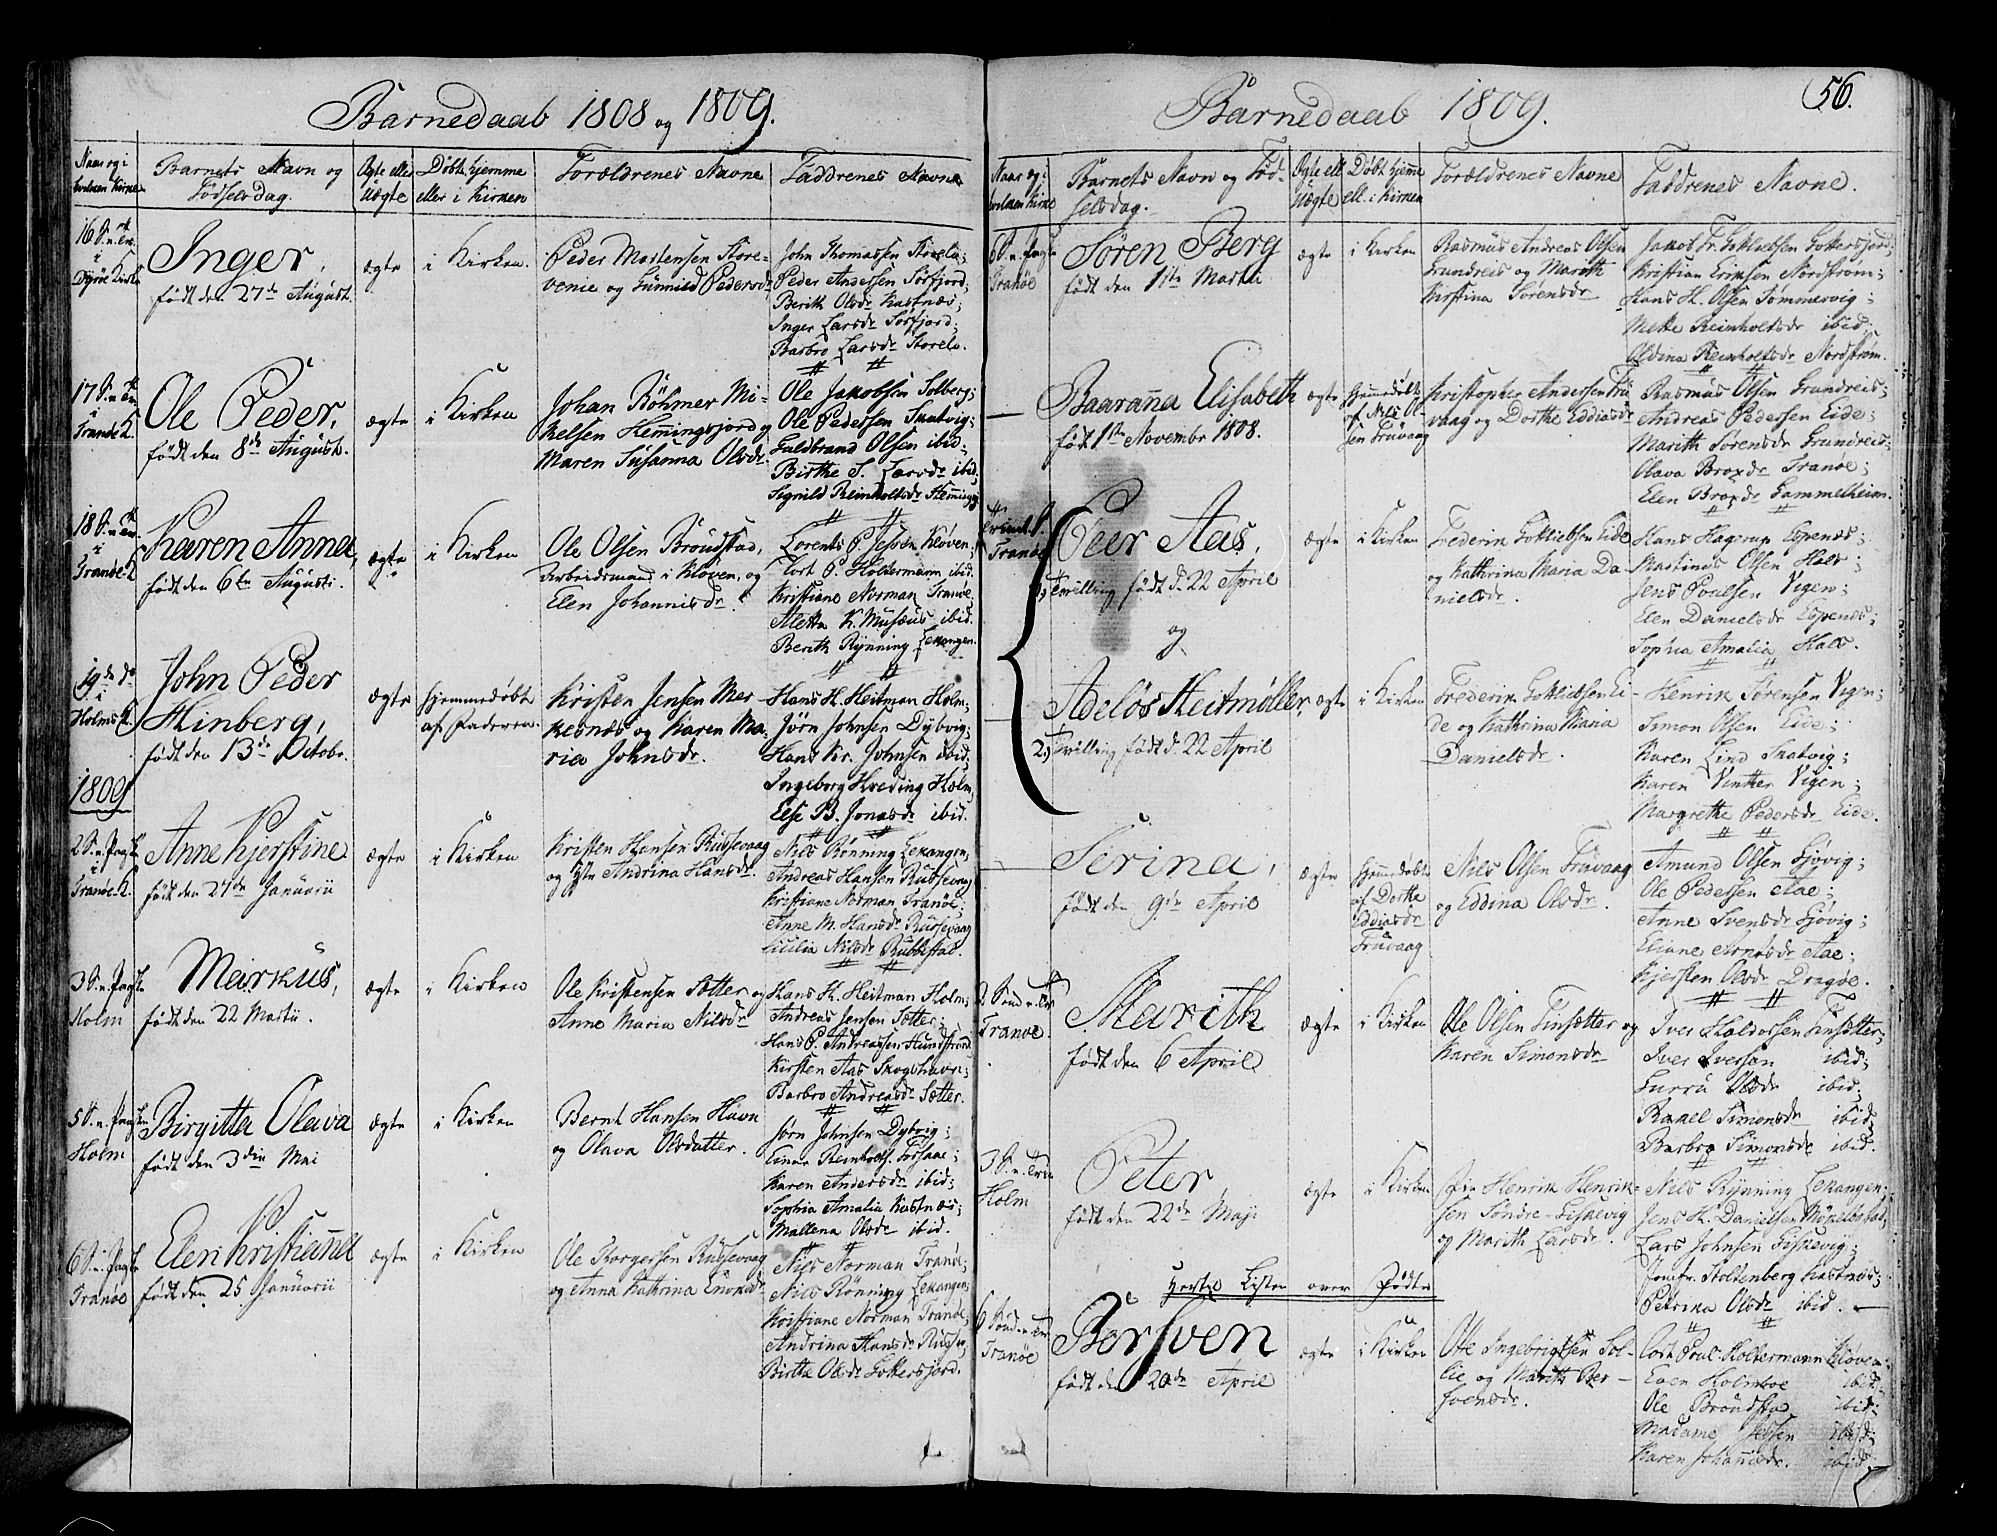 Barnedaab 1808 og 1809.
Naar og i
hvilken Kirke
Barnets Navn og
Fødselsdag.
Ægte eller
Uægte
Døbt hjemme
eller i Kirken
Forældrenes Navne
Faddrenes Navne
16 S. n. Tr.
i
Dyrøe Kirke
Inger,
født den 27de August.
ægte
i Kirken.
Peder Mortensen Store-
venie og Gunnild Pedersdr
John Thomassen Storelv;
Peder Andelsen Sørfjord;
Berith Olsdr Kastnæs;
Inger Larsdr Sørfjord;
Barbro Larsdr Storelv.
17 S. n. Tr.
i
Tranöe K.
Ole Peder,
født den 8de August.
ægte
i Kirken
Johan Böhmer Mi-
kelsen Hemingsjord og
Maren Susanna Olsdr
Ole Jakobsen Solberg;
Ole Pedersen Skatvig;
Guldbrand Olsen ibid.
Birthe S. Larsdr ibid;
Signild Reinholtsdr Hemingsj.
18 S. n. Tr.
i
Tranöe K.
Karen Anna,
født den 6te Augusti.
ægte
i Kirken
Ole Olsen Bröudstad,
Arbeidsmand i Kløven, og
Elen Johannisdr.
Lorents P. Jessen Kløven.
Cort P. Holtermann ibid.
Kristiane Norman Tranöe.
Aletta K. Musæus ibid.
Berith Rÿnning Lekangen.
19de do
i
Holms K.
John Peder
Hinberg,
født den 13de Octobr.
ægte
hjemmedøbt
af Faderen.
Kristen Jensen Mer-
kesnæs og Karen Ma-
ria Johnsdr.
Hans H. Heitman Holm;
Jørn Johnsen Dybvig;
Hans Kr. Johnsen ibid.
Ingeborg Hveding Holm,
Else B. Jonasdr ibid.
1809
2 S. n. Paaske
i
Tranöe K.
Anne Kjerstine
født den 27de Januarii
ægte
i Kirken
Kristen Hansen Rubsevaag
og Andrina Hansdr.
Nils Rönning Lekangen;
Andreas Hansen Rubsevaag
Kristiane Norman Tranöe;
Anne M. Hansdr Rubsevaag
Cicilia Nilsdr Rubbestad.
3 S. n. Paaske
Holm
Markus,
født den 22 Martii.
ægte
i Kirken
Ole Kristensen Sætter og
Anne Maria Nilsdr
Hans H. Heitman Holm;
Andreas Jensen Sætter;
Hans P. Andreassen Hundstrand
Kirsten Aas Skogshavn;
Barbro Andreasdr Sætter.
5 S. n. Paaske
Holm
Birgitta Olava
født den 3die Mai
ægte
i Kirken
Bernt Hansen Havn
og Olava Olsdatter.
Jørn Johnsen Dybvig;
Einar Reinholts. Forsaae;
Karen Andersdr ibid;
Sophia Amalia Kastnæs;
Mallena Olsdr ibid.
6 S. n. Paaske
Tranöe
Elen Kristianna
født den 25 Januarii
ægte
i Kirken
Ole Borgersen Rubsevaag
og Anna Kathrina Enoksdr
Nils Norman Tranöe;
Nils Rönning Lekangen;
Kristiane Norman Tranöe,
Andrina Hansdr Rubsev;
Birthe Olsdr Gottersjord.
56.
Barnedaab 1809.
Naar og i
hvilken Kirke
Barnets Navn og Fød-
selsdag.
Ægte ell.
Uægte
Døbt hjemme
ell. i Kirken
Forældrenes Navne
Faddrenes Navne.
6 S. n. Paaske
Tranöe
Søren Berg
født den 1ste Martii
ægte
i Kirken
Rasmus Andreas Olsen
Grundreis og Marith
Kirstina Sørensdr
Jakob Fr. Gotliebsen Gottersjord;
Kristian Eriksen Nordstrøm;
Hans H. Olsen Tømmervig;
Mette Reinholtsdr ibid;
Oldina Reinholtsdr Nordstrøm.
Baaranna Elisabeth
født 1ste Novembr 1808.
ægte
hjemmedøbt
af Nils Ol-
sen Truvaag
Kristopher Andersen Tru-
vaag og Dorthe Eddiasdr
Rasmus Olsen Grundreis;
Andreas Pedersen Eide;
Marith Sørensdr Grundreis;
Olava Broxdr Tranöe;
Elen Broxdr Gammelheim.
Trinit. S.
Tranöe
Peer Aas,
1) Tvilling født d. 22 April
og
ægte
i Kirken
Frederik Gotliebsen Eide
og Kathrina Maria Da-
nielsdr.
Hans Hagerup Espenes;
Martinus Olsen Hals;
Jens Poulsen Vigen;
Elen Danielsdr Espenes;
Sophia Amalia Hals.
Adelös Heitmøller,
2) Tvilling født d. 22 April
ægte
i Kirken
Frederik Gotliebsen Ei-
de og Kathrina Maria
Danielsdr.
Henrik Sørensen Vigen;
Simon Olsen Eide;
Karen Lind Skatvig;
Karen Vinther Vigen;
Margrethe Pedersdr Eide.
Serina,
født den 9de April
ægte
hjemmedøbt
af Dorthe
Eddiasdr
Truvaag
Nils Olsen Truvaag
og Eddina Olsdr.
Amund Olsen Gjøvig;
Ole Pedersen Aae;
Anne Svensdr Gjøvig;
Eliane Arnesdr Aae;
Kjersten Olsdr Dragöe.
2 Sønd. n. Tr.
Tranöe
Marith
født den 6 April
ægte
i Kirken
Ole Olsen Finsætter og
Karen Simonsdr
Iver Haldorsen Finsætter;
Iver Iversen ibid;
Gurru Olsdr ibid;
Rakel Simonsdr ibid;
Barbro Simonsdr ibid.
3 S. n. Trin
Holm
Peter,
født den 22de Maji
ægte
i Kirken
Henrik Henrik-
sen Søndre-Giskevig
og Marith Larsdr.
Nils Rÿnning Lekangen;
Jens K. Danielsen Møkelbostad;
Lars Johnsen Giskevig;
Jomfr. Stoltenberg Kastnes;
Petrina Olsdr ibid.
Hertil Listen over Fødte
6 Sønd. n. Trin
Tranöe
Borsven
født den 20de April
ægte
i Kirken
Ole Ingebrigtsen Sol-
lie og Marith Ber-
svensdr.
Cort Poul. Holtermann Kløven
Even Holmboe ibid.
Ole Bröudstad ibid;
Madame Jessen ibid;
Karen Johannisdr. ibid;